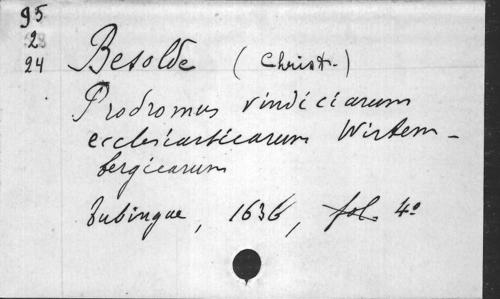 95
2
23
24
Besolde (Christ.)
Prodromus vindiciarum
ecclesiasticarum Wirtem-
bergicarum
Tubingae, 1636, fol. 4º